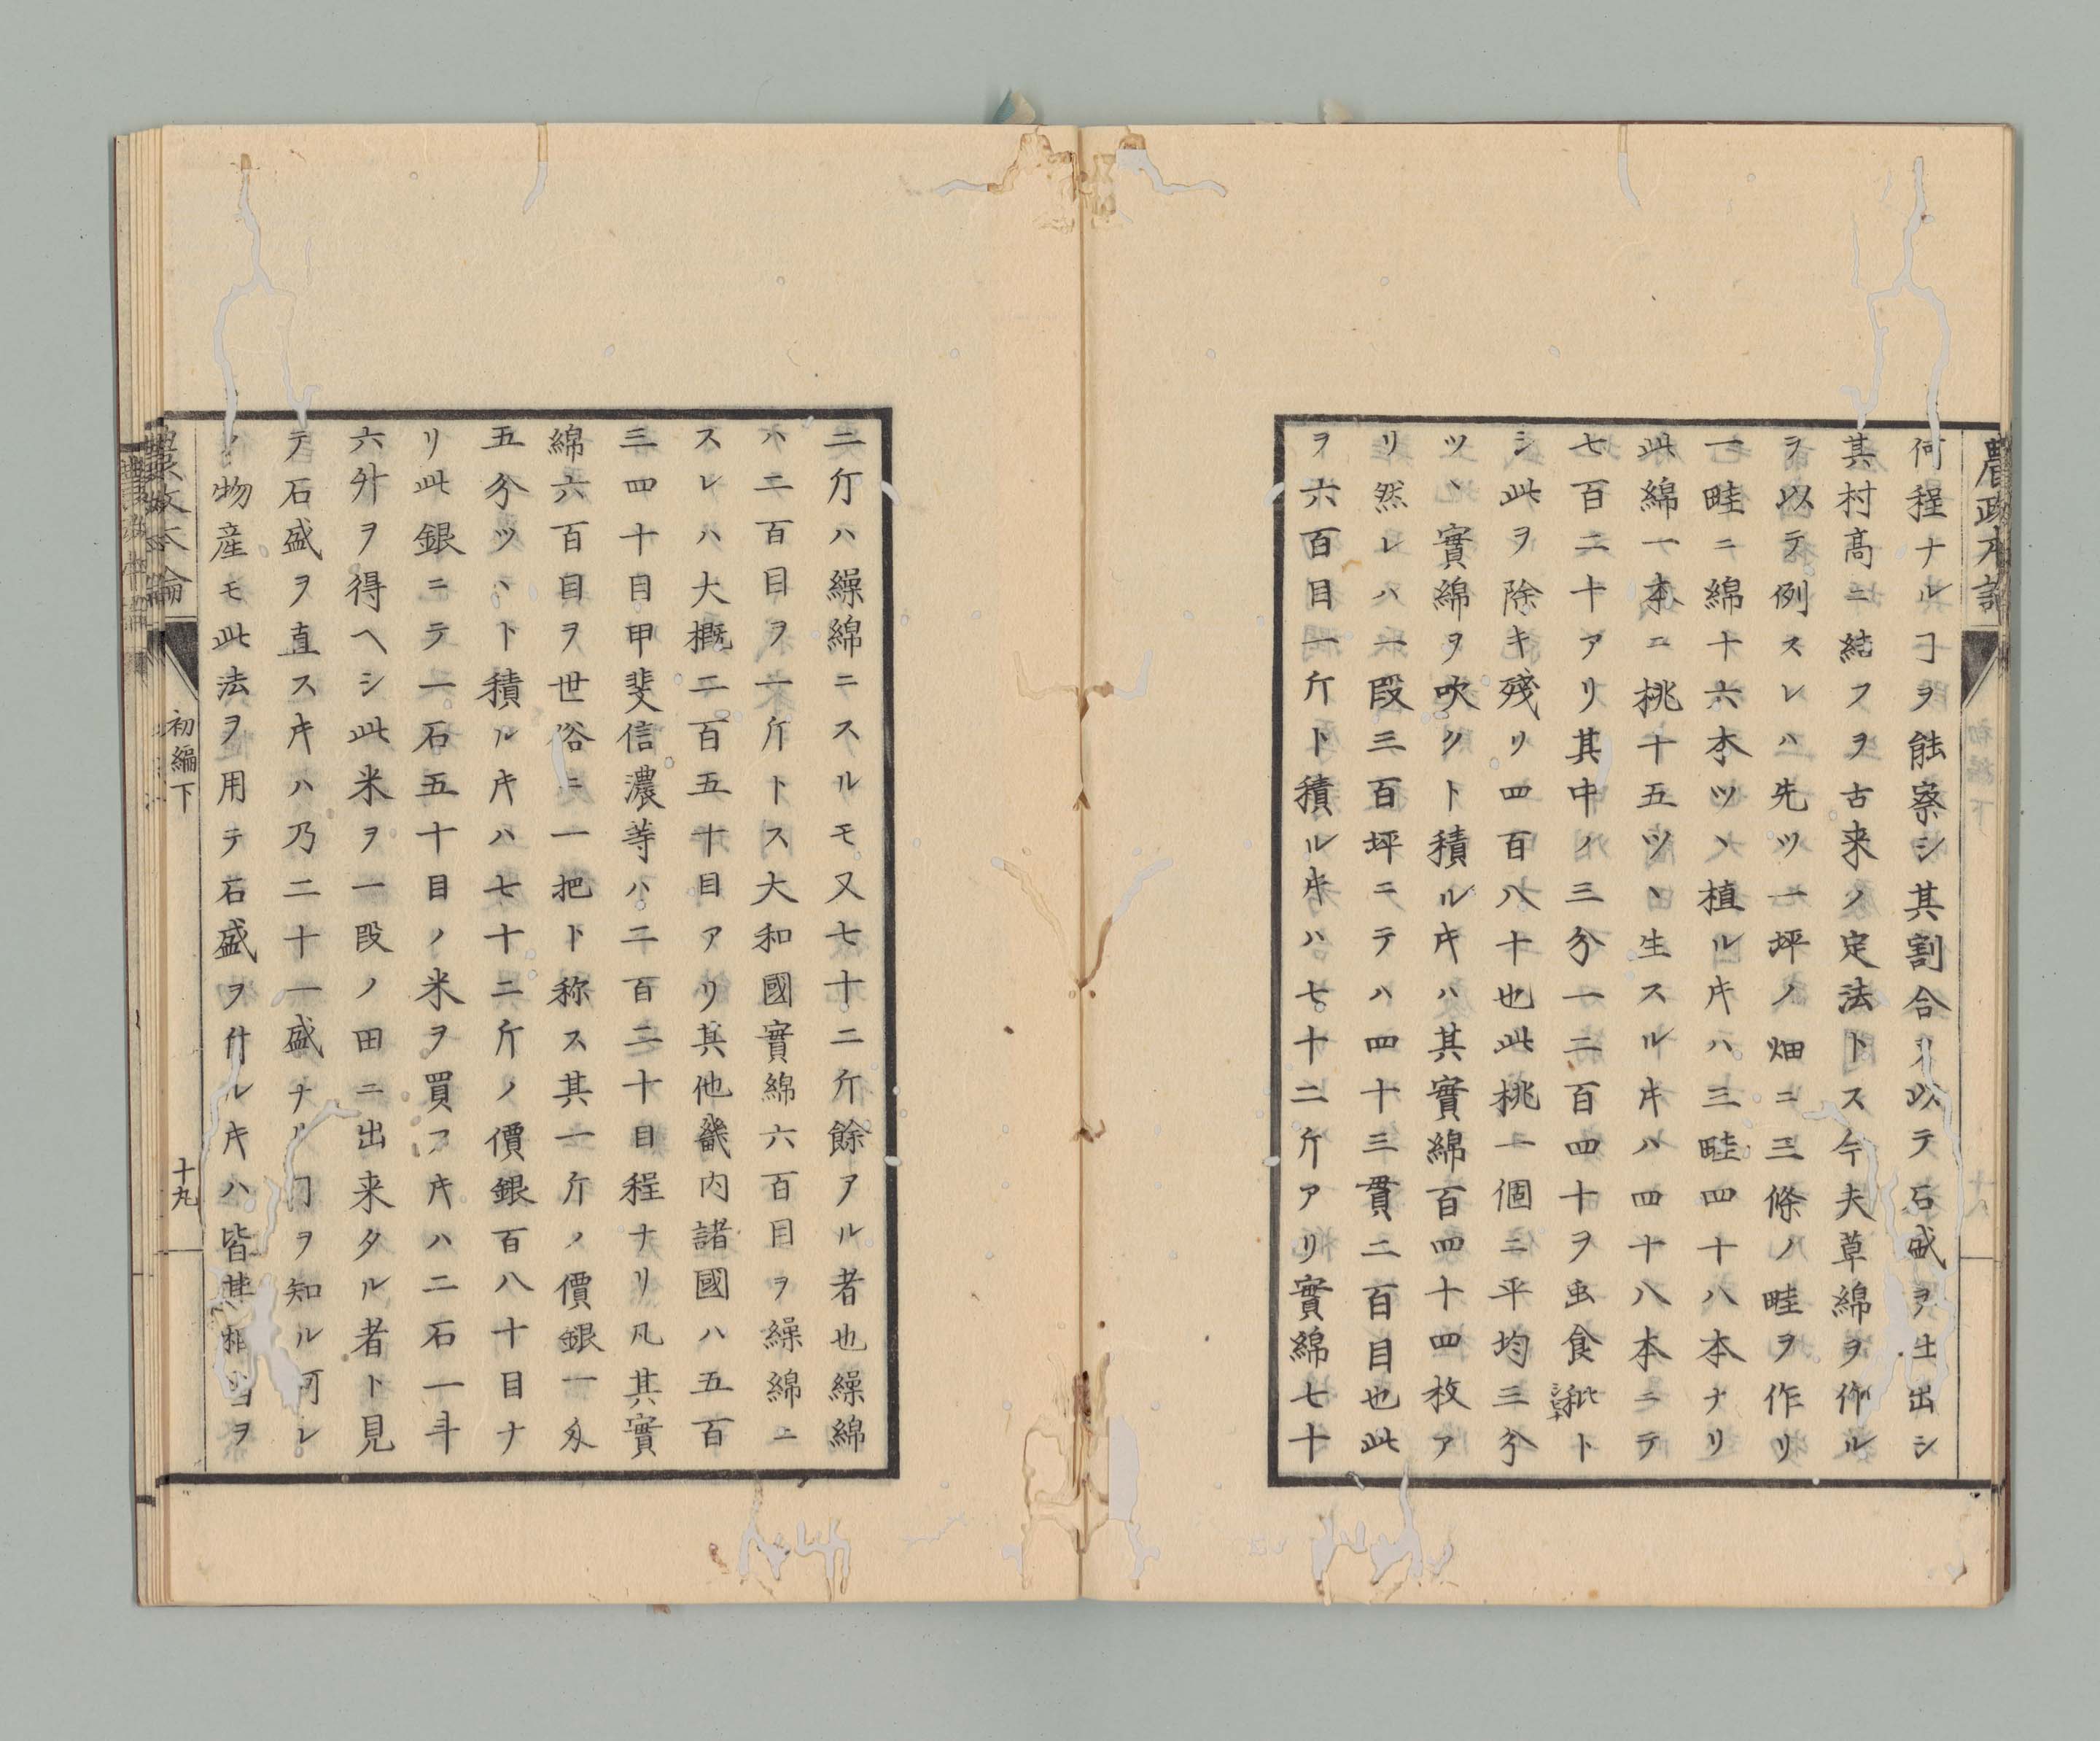 農政本論
何程ナルヿヲ能察シ其割合ヲ以テ石盛ヲ土出シ
其村髙ニ結フヲ古来ノ定法トス今夫草綿ヲ作ル
ヲ以テ例スレハ先ツ一坪ノ畑ニ三條ノ畦ヲ作リ
一畦ニ綿十六本ツヽ植ル𪜈ハ三畦四十八本ナリ
此綿一本ニ桃十五ツヽ生スルキハ四十八本ニテ
七百二十アリ其中ノ三分一二百四十ヲ虫食粃ト
シ此ヲ除キ殘リ四百八十也此桃一個ニ平均三分
ツヽ實綿ヲ吹クト積ルキハ其實綿百四十四枚ア
リ然レハ一段三百坪ニテハ四十三貫二百目也此
ヲ六百目一斤ト積ルキハ七十二斤アリ實綿七十
二斤ハ繰綿ニスルモ又七十二斤餘アル者也繰綿
ハ二百目ヲ一斤トス大和國實綿六百目ヲ繰綿ニ
スレハ大概二百五十目アリ其他畿内諸國ハ五百
三四十目甲斐信濃等ハ二百二十目程ナリ凡其實
綿六百目ヲ世俗ニ一把ト称ス其一斤ノ價銀一匁
五分ツヽト積ルキハ七十二斤ノ價銀百八十目ナ
リ此銀ニテ一石五十目ノ米ヲ買フキハ二石一斗
六升ヲ得ヘシ此米ヲ一段ノ田ニ出来タル者ト見
テ石盛ヲ直スキハ乃二十一盛ナルヿヲ知ル何レ
ノ物産モ此法ヲ用テ石盛ヲ付ルキハ皆其相當ヲ
農政本論
初編下
十九